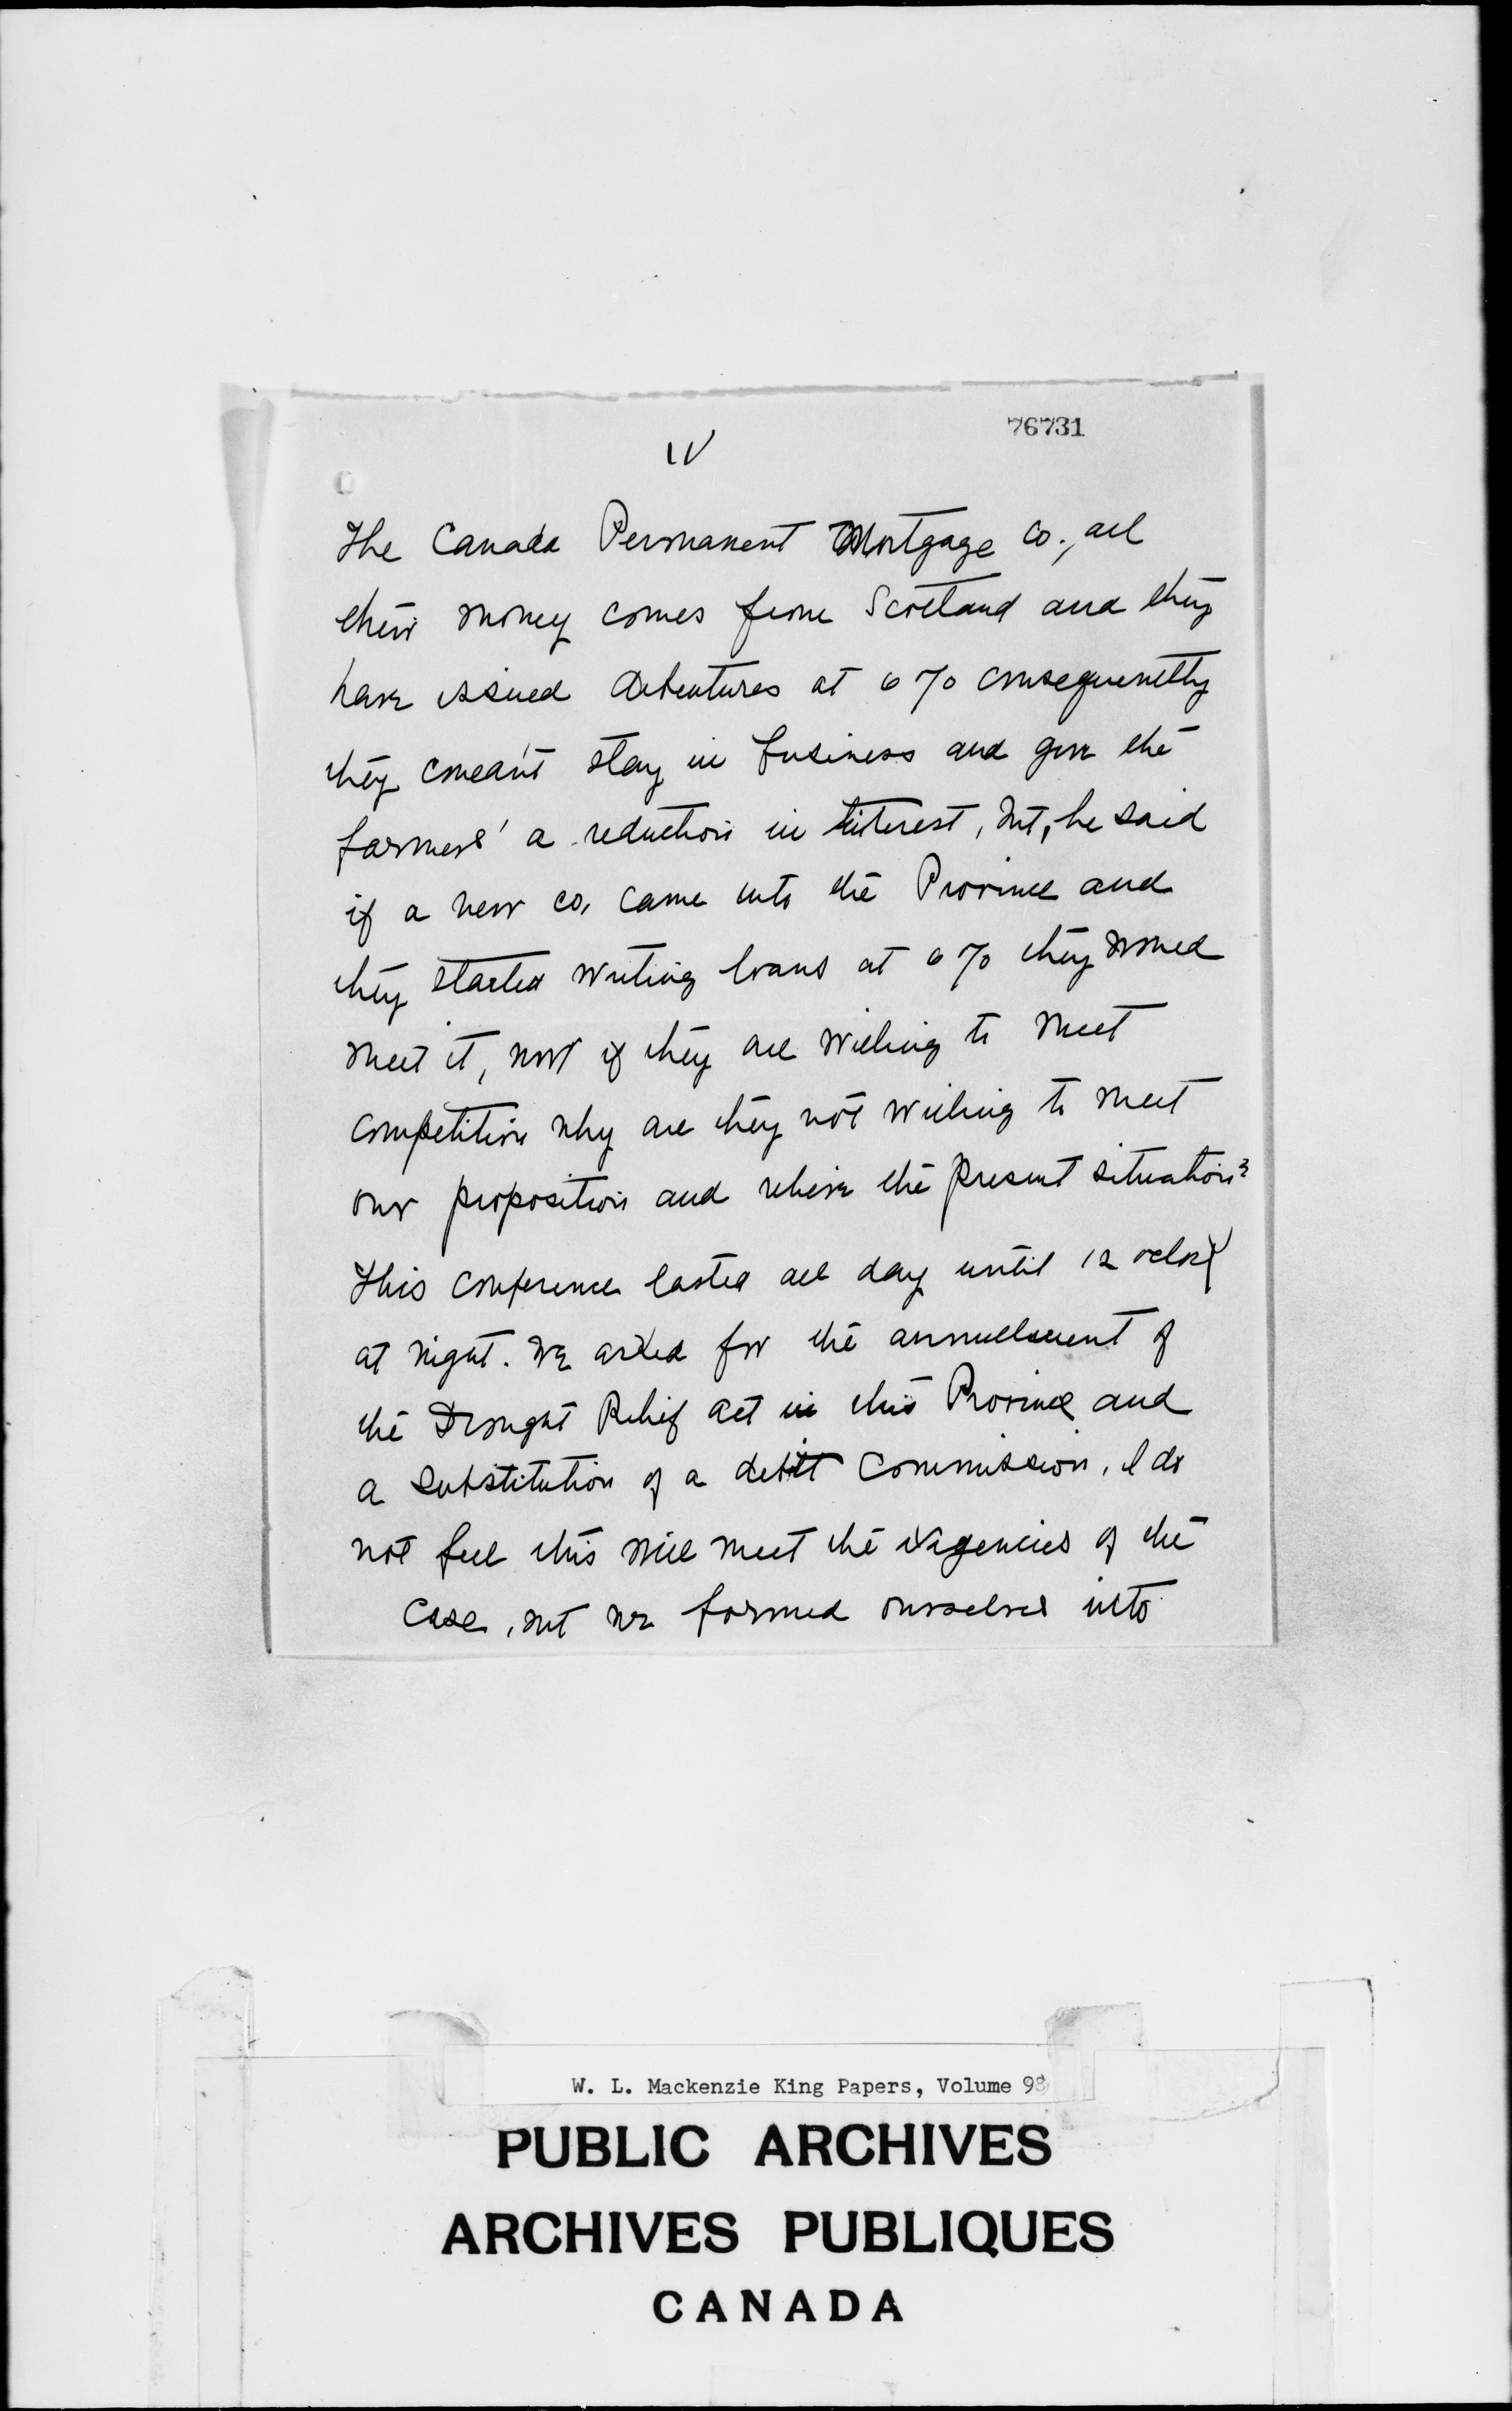 76731
IV
The Canada Permanent Mortgage Co., all
their money comes from Scotland and they
have issued debentures at 6% consequenttly
they could'nt stay in business and give the
farmers' a reduction in interest, but, he said
if a new co, came into the Province and
they started writing loans at 6% they would
meet it, now if they are willing to meet
competition why are they not willing to meet
our proposition and relieve the present situation?
This conference lasted all day until 12 oclock
at night. We asked for the annullment of
the Drought Relief act in this Province and
a substitution of a debt commission, I do
not feel this will meet the exagencies of the
case, but we formed ourselves into
W. L. Mackenzie King Papers, Volume 98
PUBLIC ARCHIVES
ARCHIVES PUBLIQUES
CANADA